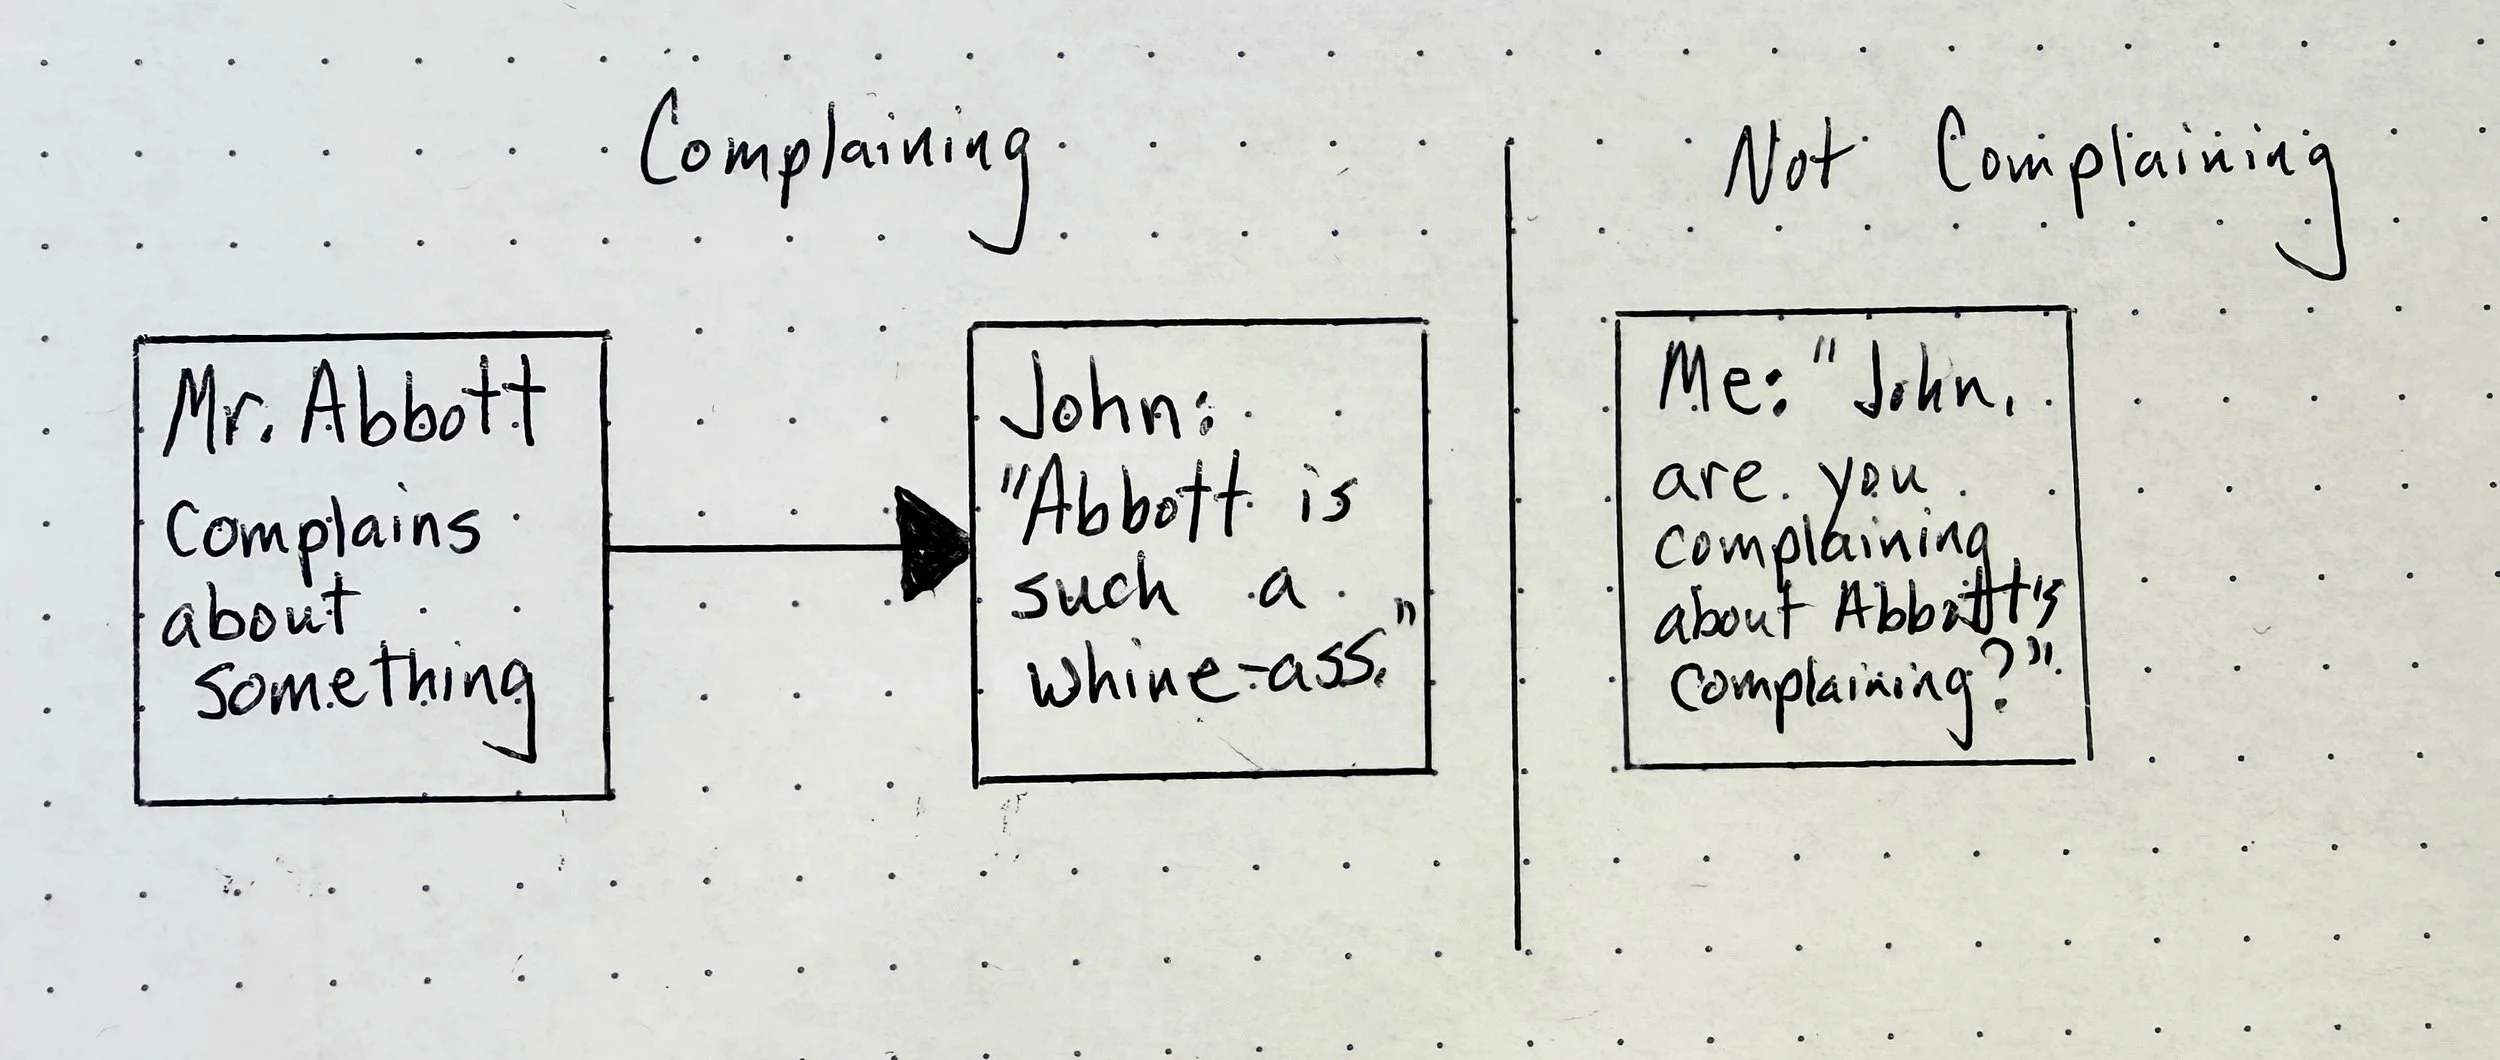 Complaining
Not Complaining
Mr. Abbott
Complains
about
something
John:
"Abbott is
such a
whine-ass."
Me: "John,
are you
complaining
about Abbott's
complaining?"